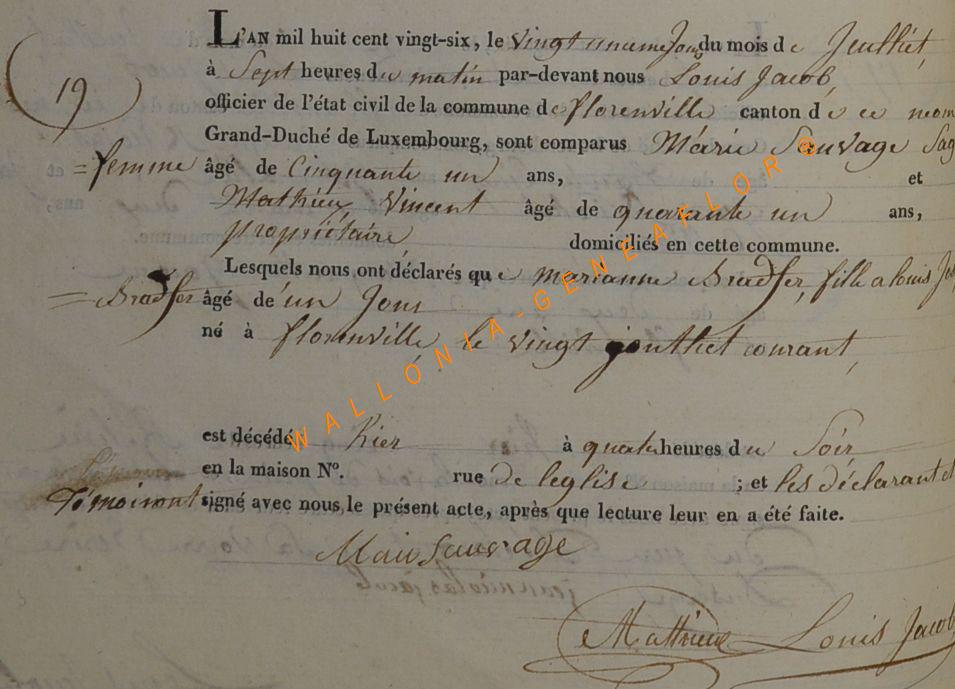 L'AN mil huit cent vingt-six, le vingt unieme Jour du mois de Jeulliet,
19
à Sept heures du matin par-devant nous Louis Jacob,
officier de l'état civil de la commune de florenville canton de ce nom
Grand-Duché de Luxembourg, sont comparus Marie Sauvage Sag
=femme âgé de Cinquante un ans, et
Mathieu Vincent âgé de quarante un ans,
propriétaire, domiciliés en cette commune.
Lesquels nous ont déclarés que marianne Bradfer, fille a louis
= Bradfer âgé de un Jour
né à florenville le vingt jeulliet courant,
est décédé hier à quatre heures du Soir
en la maison N°. rue de leglise ; et les déclarant et
Témoin ont signé avec nous le présent acte, après que lecture leur en a été faite.
Mari Sauvage
Mathieu Louis Jacob
WALLONIA-GENEAFLOR©